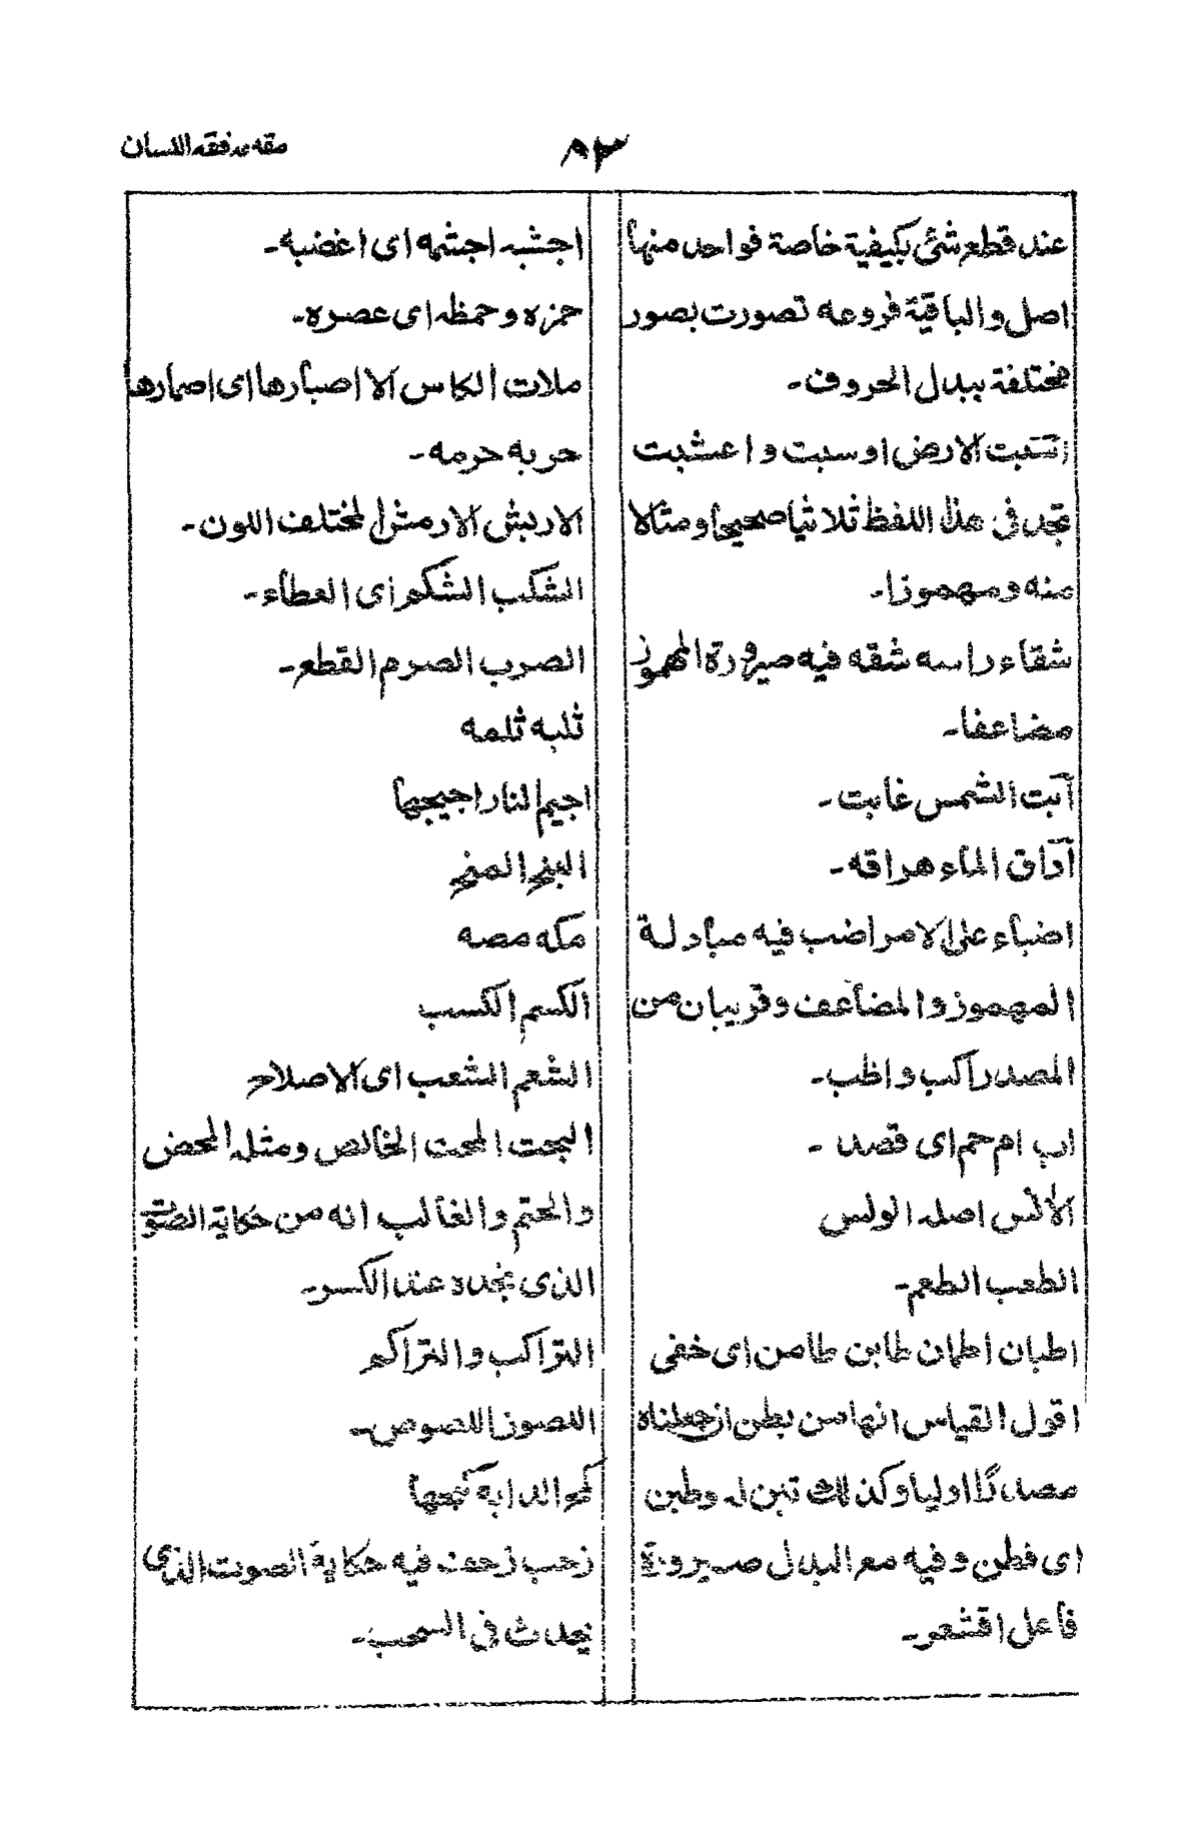 مقدمہ فقہ اللسان
٨٣
عند قطع شئ بكيفية خاصة فواحد منها
اصل والباقية فروعه تصورت بصور
مختلفة ببدل الحروف۔
الارض اوسبت واعشبت
تجد فى هذا اللفظ ثلاثيا صحيحا ومثالا
منه ومهموزا۔
شقاء راسه شقه فيه صيرورة المهموز
مضاعفا۔
آبت الشمس غابت۔
آداق الماء هراقه۔
اضباء على الامر اضب فيه مبادلة
المهموز والمضاعف وقريبان من
المصدر اكب واظب۔
اب ام حم اى قصد ۔
الألس اصله الولس
الطعب الطعم۔
اطبان اطمان طابن طامن اى خفى
اقول القياس انها من بطن اذ جعلناه
مصدرا اوليا وكذلك تبن له وطبن
اى فطن وفيه مع البدل صيرورة
فاعل اقشعر۔
اجشبه اجشمه اى اغضبه۔
حمزه وحمظه اى عصره۔
ملات الكاس الا اصبارها اى اصمارها
حربه حرمه۔
الاربش الارمش لمختلف اللون۔
الشكب الشكم اى العطاء۔
الصرب الصرم القطع۔
ثلبه ثلمه
اجيم النار اجيجها
البنح المنح
مكه مصه
الكسم الكسب
الشعم الشعب اى الاصلاح
البحت المحت الخالص ومثله المحض
والحتم والغالب انه من حكاية الصوت
الذى نجده عند الكسر۔
التراكب والتراكم
اللصوز اللصوص۔
الدابة كبحها
زحب زحف فيه حكاية الصوت الذى
يحدث فى السحب۔